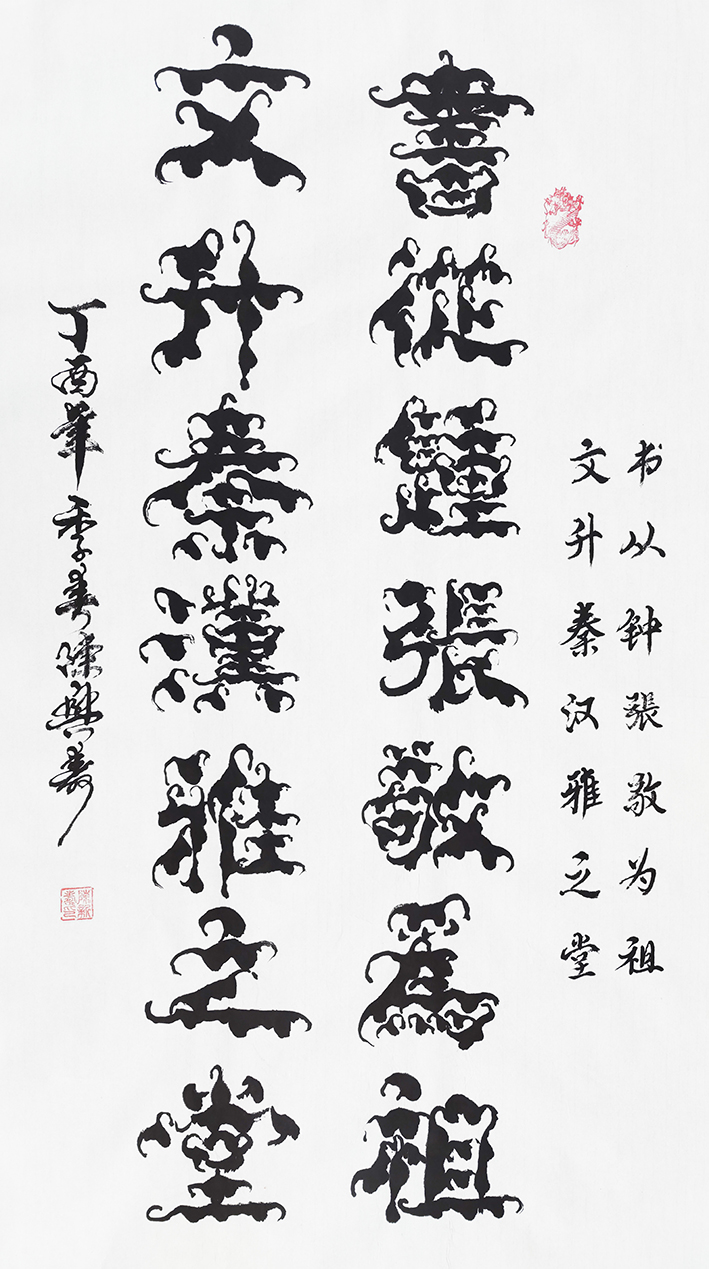 书从钟張敬为祖
文升秦汉雅之堂
書從鍾張敬爲祖
文升秦漢雅之堂
丁酉年季春陳興